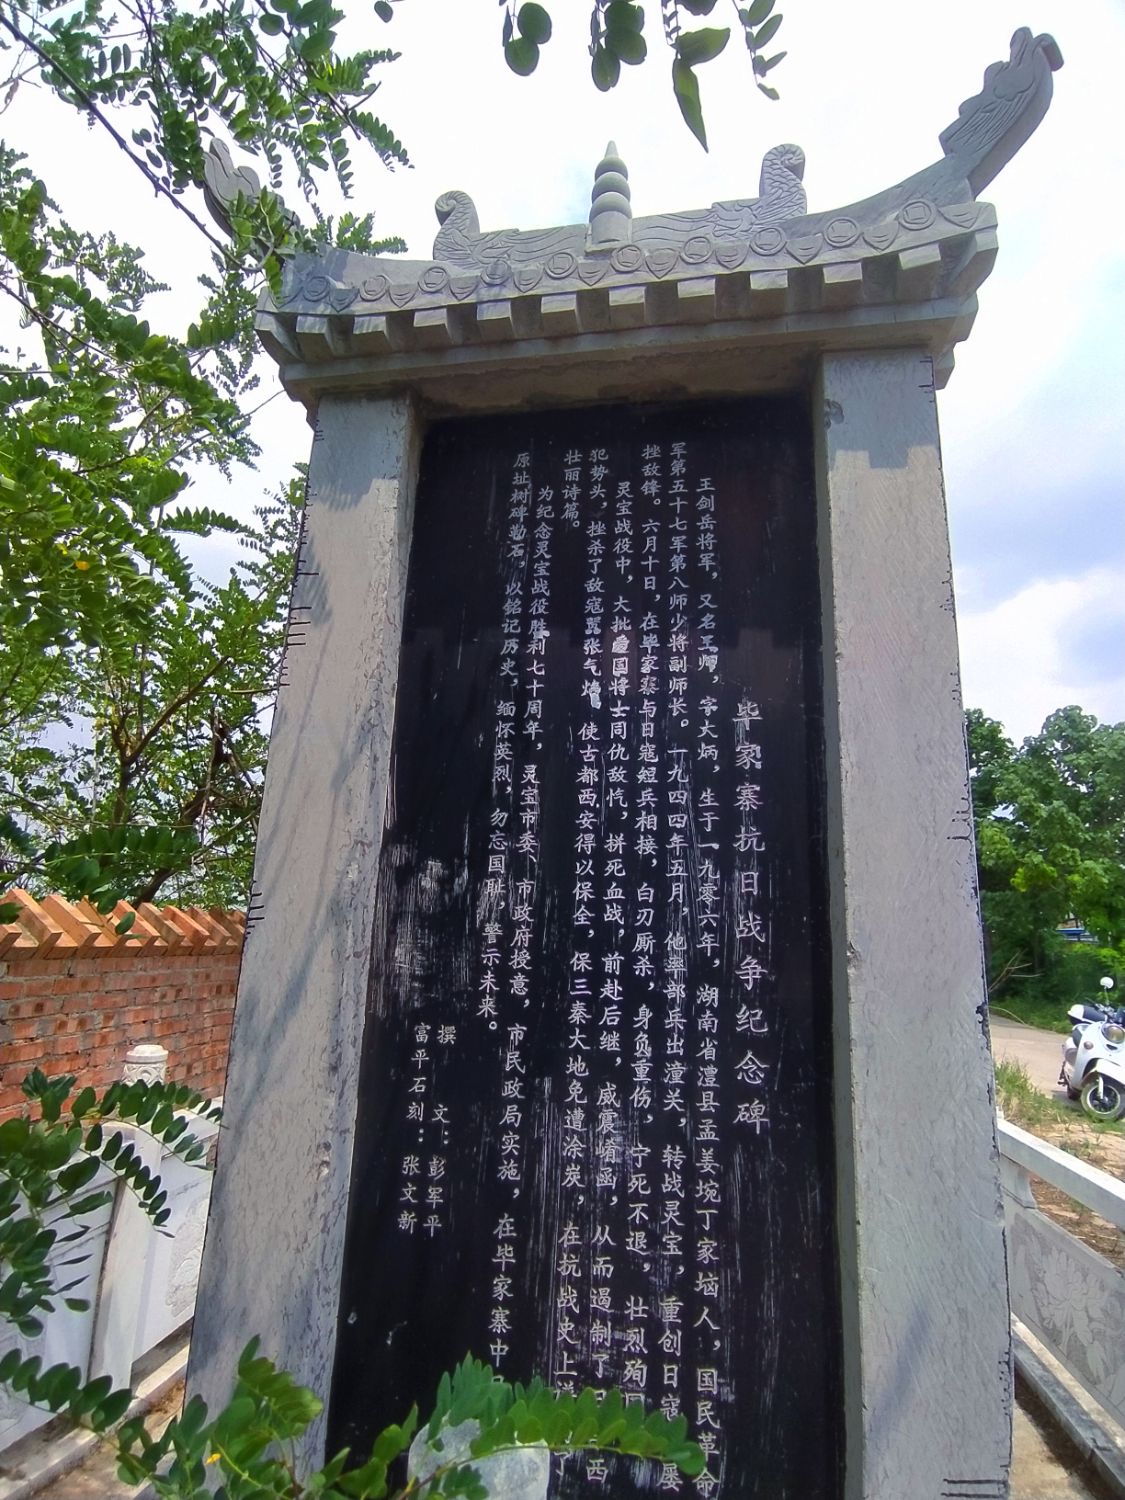 毕家寨抗日战争纪念碑
王剑岳将军，又名王师，字大炳，生于一九零六年，湖南省澧县孟姜垸丁家垴人，国民革命
军第五十七军第八师少将副师长。一九四四年五月，他率部兵出潼关，转战灵宝，重创日寇，屡
挫敌锋。六月十日，在毕家寨与日寇短兵相接，白刃厮杀，身负重伤，宁死不退，壮烈殉
灵宝战役中，大批爱国将士同仇敌忾，拼死血战，前赴后继，威震崤函，从而遏制了 西
犯势头，挫杀了敌寇嚣张气焰，使古都西安得以保全，保三秦大地免遭涂炭，在抗战史上 了
壮丽诗篇。
为纪念灵宝战役胜利七十周年，灵宝市委、市政府授意，市民政局实施，在毕家寨中
原址树碑勒石，以铭记历史，缅怀英烈，勿忘国耻，警示未来。
撰 文：彭军平
富平石刻：张文新